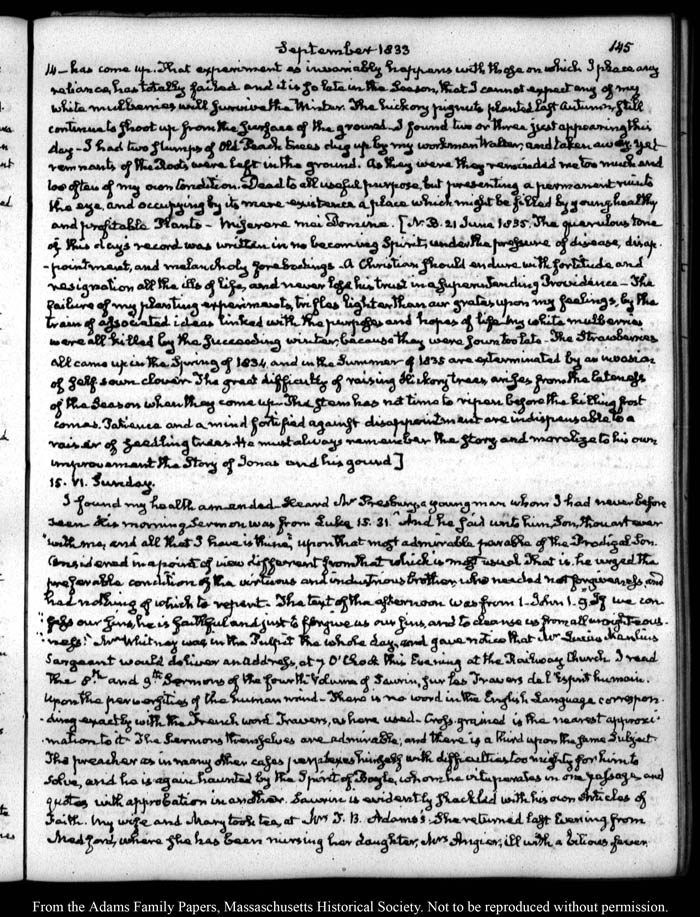 September 1833 145
14 - has come up. That experiment as invariably happens with those on which I place any
reliance, has totally failed and it is so late in the Season, that I cannot expect any of my
white mulberries will survive the Winter. The hickory pignuts planted last Autumn, still
continue to shoot up from the surface of the ground. I found two or three just appearing this
day - I had two stumps of old Peach trees dug up by my workman Walter, and taken away, yet
remnants of the Roots were left in the ground. As they were they reminded me too much and
too often of my own condition. Dead to all useful purpose, but presenting a permanent ruin to
the eye, and occupying by its mere existence a place which might be filled by young healthy
and profitable Plants - Miserere mei Domine. [N.B. 21 June 1835. The querulous tone
of this day's record was written in no becoming Spirit, under the pressure of disease, disap-
-pointment, and melancholy forebodings. A Christian should endure with fortitude and
resignation all the ills of life, and never lose his trust in a Superintending Providence - The
failure of my planting experiments, trifles lighter than air grates upon my feelings, by the
train of associated ideas linked with the purposes and hopes of life. My white mulberries
were all killed by the succeeding winter, because they were sown too late - The Strawberries
all came up in the Spring of 1834, and in the Summer of 1835 are exterminated by an invasion
of self sown clover. The great difficulty of raising Hickory trees, arises from the lateness
of the Season when they come up. The stem has not time to ripen before the killing frost
comes. Patience and a mind fortified against disappointment are indispensable to a
raiser of seedling trees. He must always remember the story, and moralize to his own
improvement the Story of Jonas and his gourd]
15. VI. Sunday.
I found my health amended - Heard Mr Presbury, a young man whom I had never before
seen. His morning Sermon was from Luke 15. 31. And he said unto him, Son, thou art ever
"with me, and all that I have is thine", upon that most admirable parable of the Prodigal Son.
Considered in a point of view different from that which is most usual. That is, he urged the
preferable condition of the virtuous and industrious brother, who needed not forgiveness, and
had nothing of which to repent - The text of the afternoon was from 1. John 1. 9 "If we con-
"fess our sins, he is faithful and just to forgive us our sins, and to cleanse us from all unrighteous-
"ness." Mr Whitney was in the Pulpit the whole day, and gave notice that Mr Lucius Manlius
Sargeant would deliver an address, at 7 O'Clock this Evening at the Railway Church. I read
the 8th and 9th Sermons of the fourth Volume of Saurin, sur les Travers de l'Esprit humain.
Upon the perversities of the human mind - There is no word in the English Language correspon-
-ding exactly with the French word Travers, as here used - Cross-grained is the nearest approxi-
-mation to it. The Sermons themselves are admirable, and there is a third upon the same Subject.
The preacher as in many other cases perplexes himself with difficulties too mighty for him to
solve, and he is again haunted by the Spirit of Bayle, whom he vituperates in one passage and
quotes with approbation in another. Saurin is evidently shackled with his own Articles of
Faith. My wife and Mary took tea, at Mrs T. B. Adams's. She returned last Evening from
Medford, where she has been nursing her daughter, Mrs Angier, ill with a bilious fever.
From the Adams Family Papers, Massachusetts Historical Society. Not to be reproduced without permission.